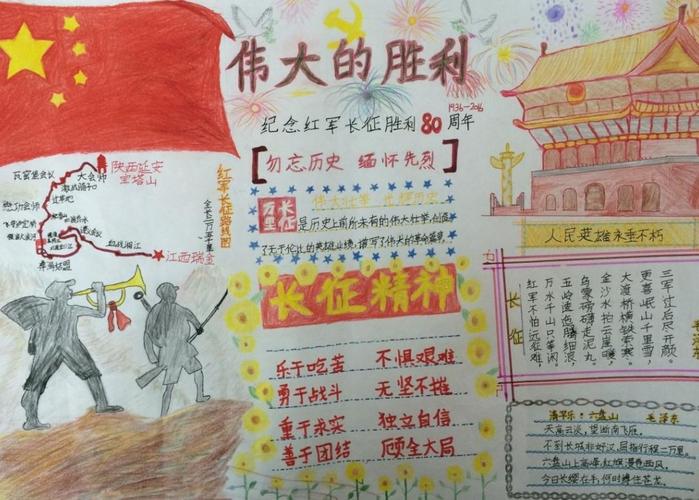 伟大的胜利
1936-2016
纪念红军长征胜利80周年
【勿忘历史 缅怀先烈】
伟大壮举 光辉历史
万里长征
是历史上前所未有的伟大壮举,创造
了无于伦比的英雄业绩,谱写了伟大的革命篇章。
长征精神
乐于吃苦 不惧艰难
勇于战斗 无坚不摧
重于求实 独立自信
善于团结 顾全大局
红军长征路线图
全长二万五千里
陕西延安
宝塔山
大会师
瓦窑堡会议
激战腊子口
过草地
懋功会师
飞夺泸定桥
强渡大渡河
遵义会议
血战湘江
江西瑞金
人民英雄永垂不朽
长征
红军不怕远征难,
万水千山只等闲。
五岭逶迤腾细浪,
乌蒙磅礴走泥丸。
金沙水拍云崖暖,
大渡桥横铁索寒。
更喜岷山千里雪,
三军过后尽开颜。
清平乐·六盘山 毛泽东
天高云淡,望断南飞雁。
不到长城非好汉,屈指行程二万里。
六盘山上高峰,红旗漫卷西风。
今日长缨在手,何时缚住苍龙